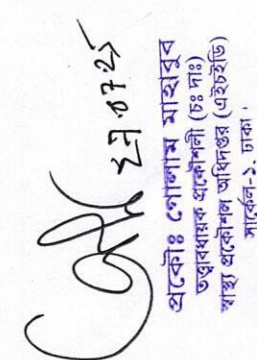 প্রকৌঃ গোলাম মাহাবুব
তত্ত্বাবধায়ক প্রকৌশলী (চঃ দাঃ)
স্বাস্থ্য প্রকৌশল অধিদপ্তর (এইচইডি)
সার্কেল-১, ঢাকা।